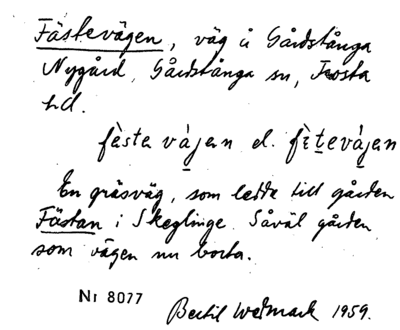 Fästevägen, väg å Gårdstånga
Nygård, Gårdstånga sn, Frosta
hd.
fèste vàjen el. fètevàjen
En gräsväg, som ledde till gården
Fästan i Skeglinge. Såväl gården
som vägen nu borta.
Nr 8077
Bertil Wetmark 1959.